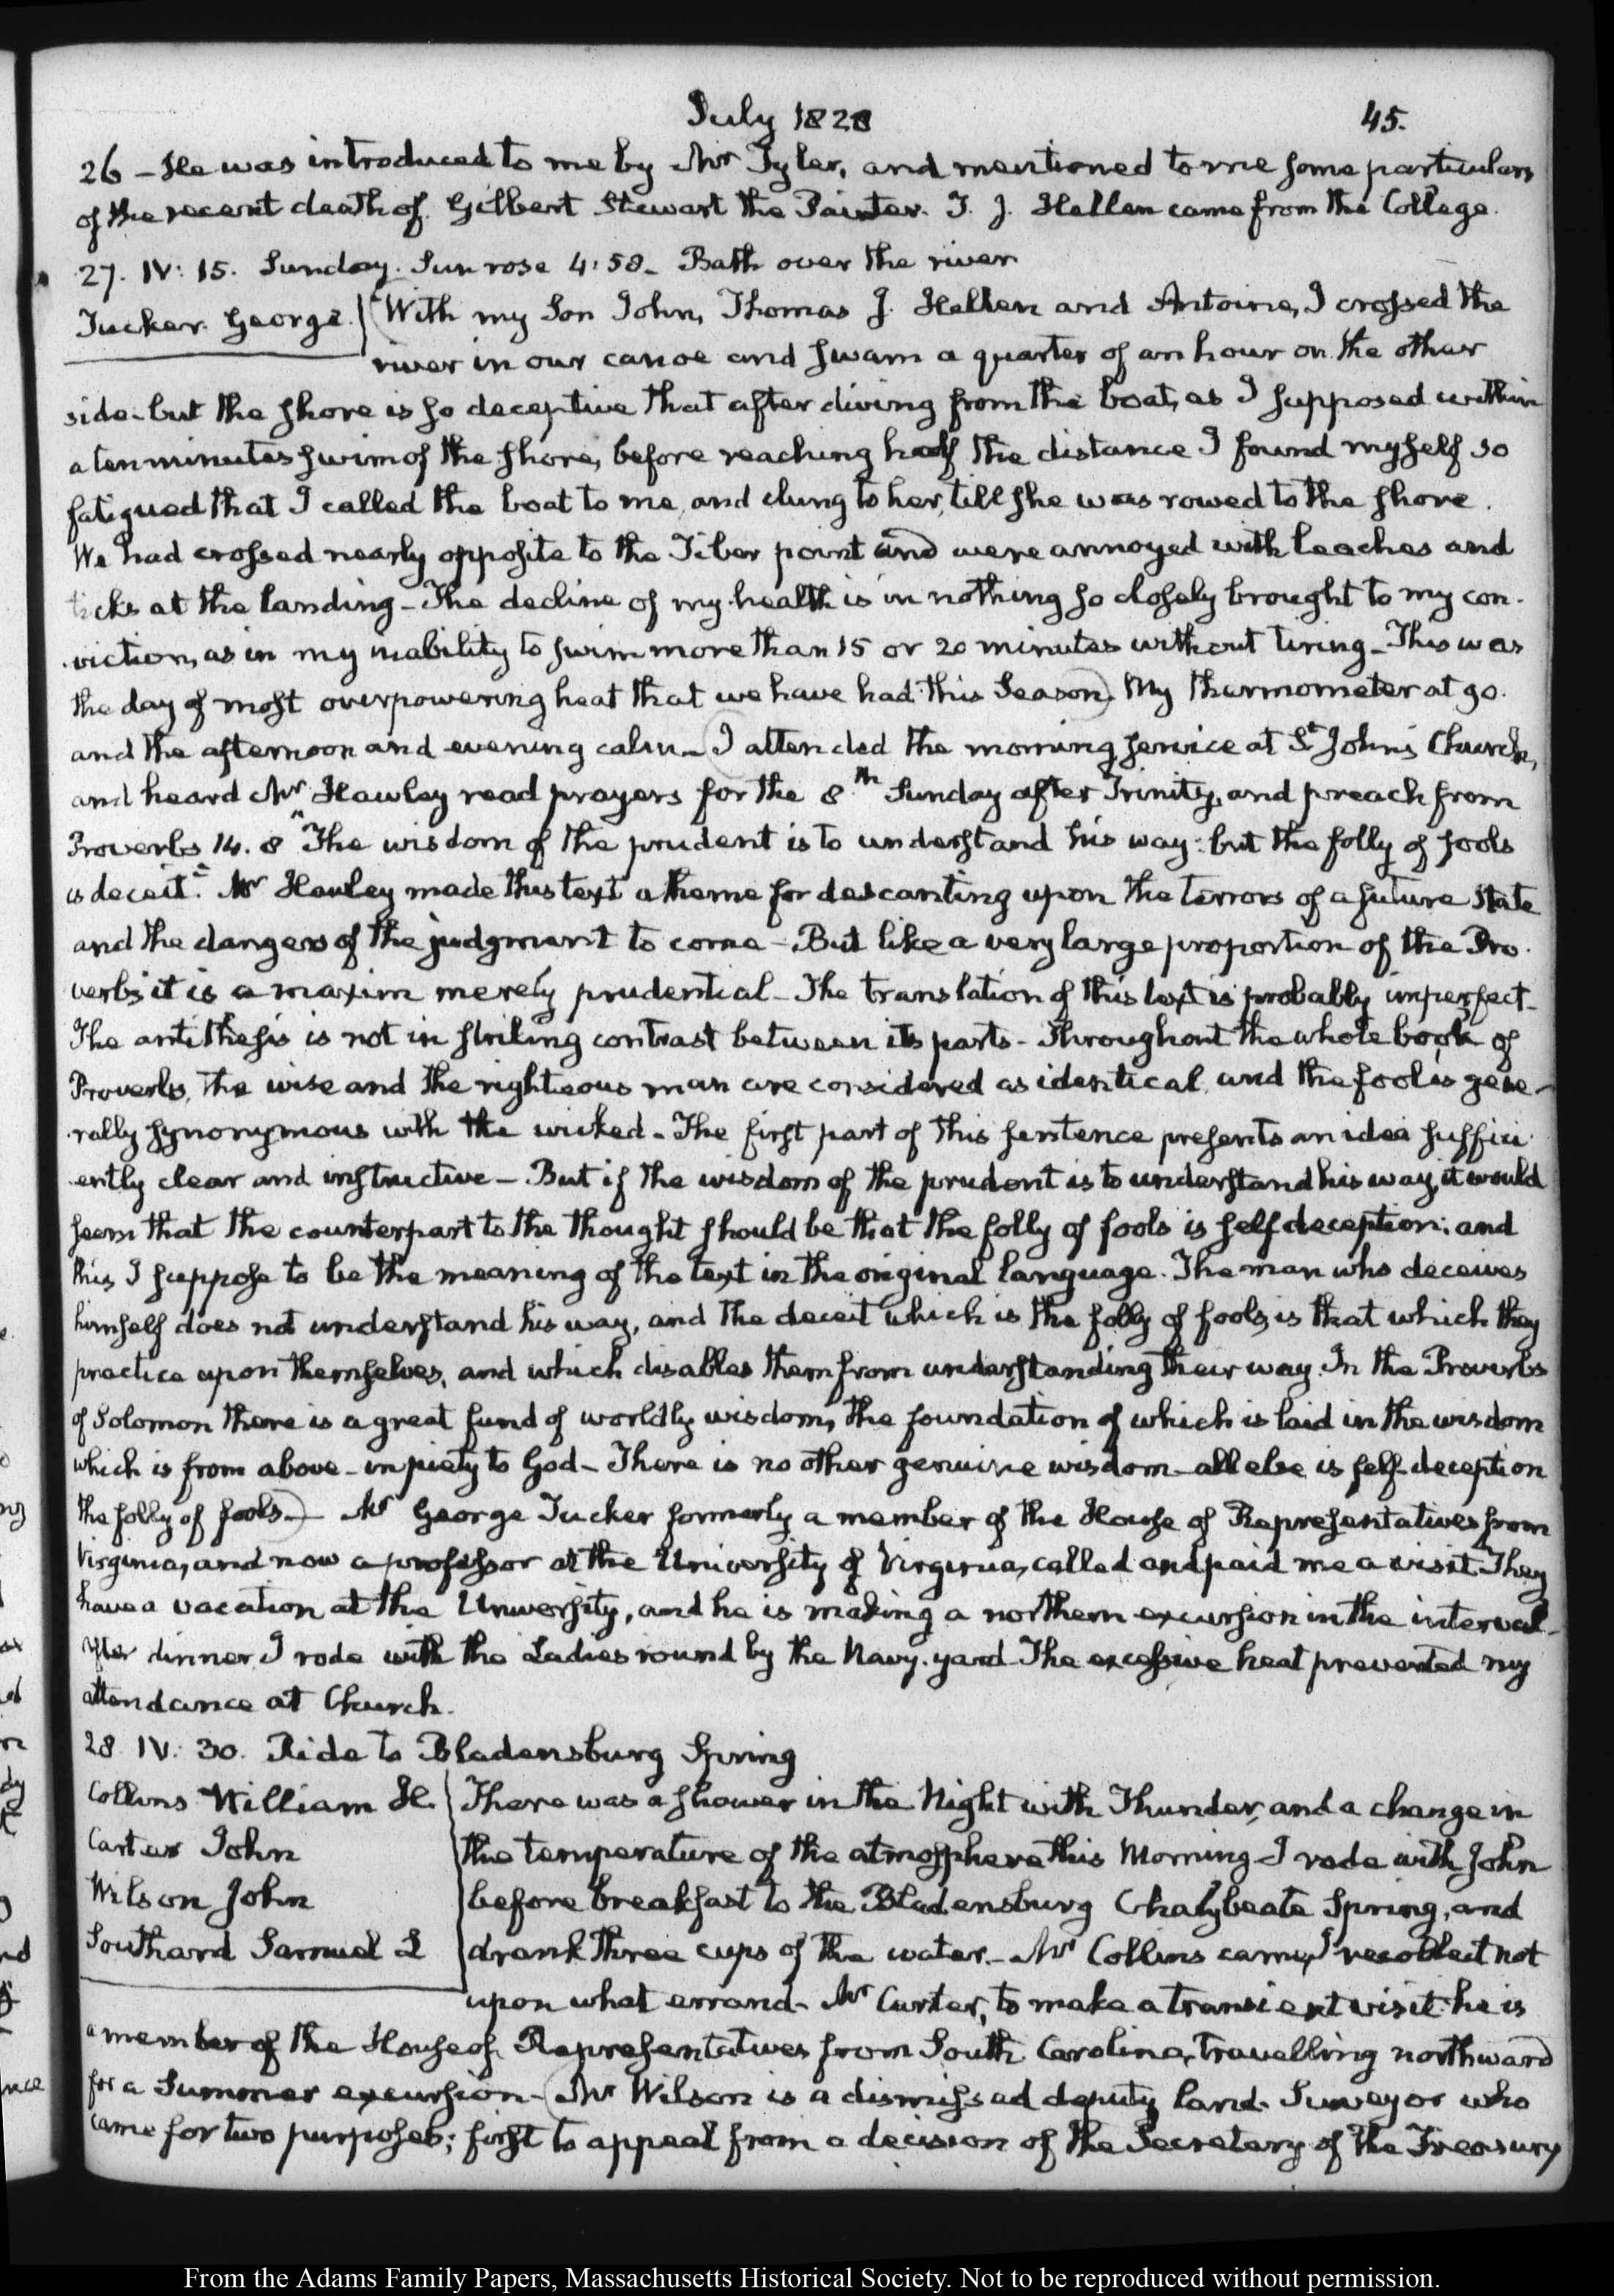 July 1828
45.
26 – He was introduced to me by Mr Tyler, and mentioned to me some particulars
of the recent death of Gilbert Stewart the Painter. T. J. Hellen came from the College.
27. IV: 15. Sunday. Sun rose 4:58. Bath over the river
Tucker. George.
With my Son John, Thomas J. Hellen and Antoine, I crossed the
river in our canoe and swam a quarter of an hour on the other
side – but the shore is so deceptive that after diving from the boat, as I supposed within
a ten minutes swim of the shore, before reaching half the distance I found myself so
fatigued that I called the boat to me, and clung to her, till she was rowed to the shore.
We had crossed nearly opposite to the Tiber point and were annoyed with leaches and
ticks at the landing – The decline of my health is in nothing so closely brought to my con-
viction, as in my inability to swim more than 15 or 20 minutes without tiring – This was
the day of most overpowering heat that we have had this Season, My thermometer at 90.
and the afternoon and evening calm – I attended the morning service at St Johns Church,
and heard Mr Hawley read prayers for the 8th Sunday after Trinity, and preach from
Proverbs 14. 8 "The wisdom of the prudent is to understand his way: but the folly of fools
is deceit." Mr Hawley made this text a theme for descanting upon the terrors of a future State
and the dangers of the judgment to come – But like a very large proportion of the Pro-
verbs it is a maxim merely prudential – The translation of this text is probably imperfect –
The antithesis is not in striking contrast between its parts – Throughout the whole book of
Proverbs, the wise and the righteous man are considered as identical, and the fool is gene-
rally synonymous with the wicked – The first part of this sentence presents an idea suffici-
ently clear and instructive – But if the wisdom of the prudent is to understand his way, it would
seem that the counterpart to the thought should be that the folly of fools is self deception; and
this I suppose to be the meaning of the text in the original language. The man who deceives
himself does not understand his way, and the deceit which is the folly of fools, is that which they
practice upon themselves, and which disables them from understanding their way. In the Proverbs
of Solomon there is a great fund of worldly wisdom, the foundation of which is laid in the wisdom
which is from above – in piety to God – There is no other genuine wisdom – all else is self-deception
the folly of fools – Mr George Tucker formerly a member of the House of Representatives from
Virginia, and now a professor at the University of Virginia, called and paid me a visit. They
have a vacation at the University, and he is making a northern excursion in the interval –
After dinner I rode with the Ladies round by the Navy-yard. The excessive heat prevented my
attendance at Church.
28. IV: 30. Ride to Bladensburg Spring
Collins William H.
Carter John
Wilson John
Southard Samuel L
There was a shower in the Night with Thunder, and a change in
the temperature of the atmosphere this Morning – I rode with John
before breakfast to the Bladensburg Chalybeate Spring, and
drank three cups of the water. – Mr Collins came, I recollect not
upon what errand – Mr Carter, to make a transient visit. he is
a member of the House of Representatives from South Carolina, travelling northward
for a Summer excursion – Mr Wilson is a dismissed deputy land-Surveyor who
came for two purposes; first to appeal from a decision of the Secretary of the Treasury
From the Adams Family Papers, Massachusetts Historical Society. Not to be reproduced without permission.